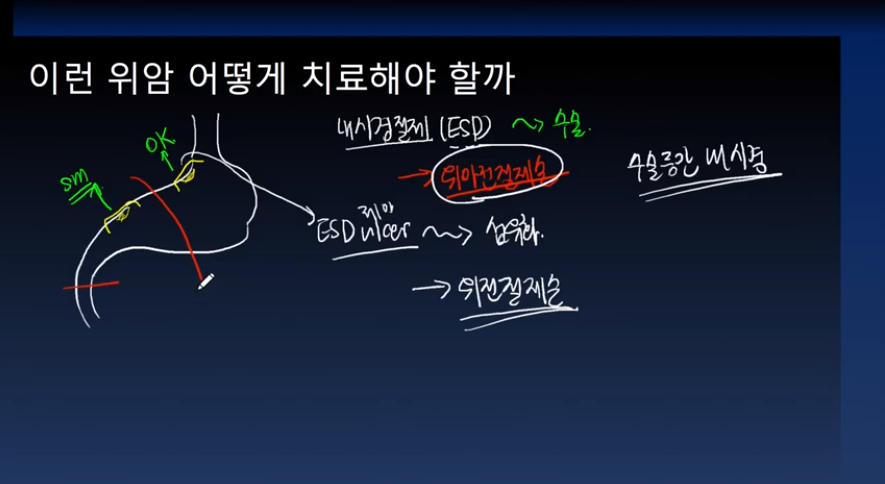 이런 위암 어떻게 치료해야 할까
내시경절제 (ESD) 수술.
OK
sm
위아전절제술
수술중간 내시경
ESD ulcer 섬유화.
위전절제술